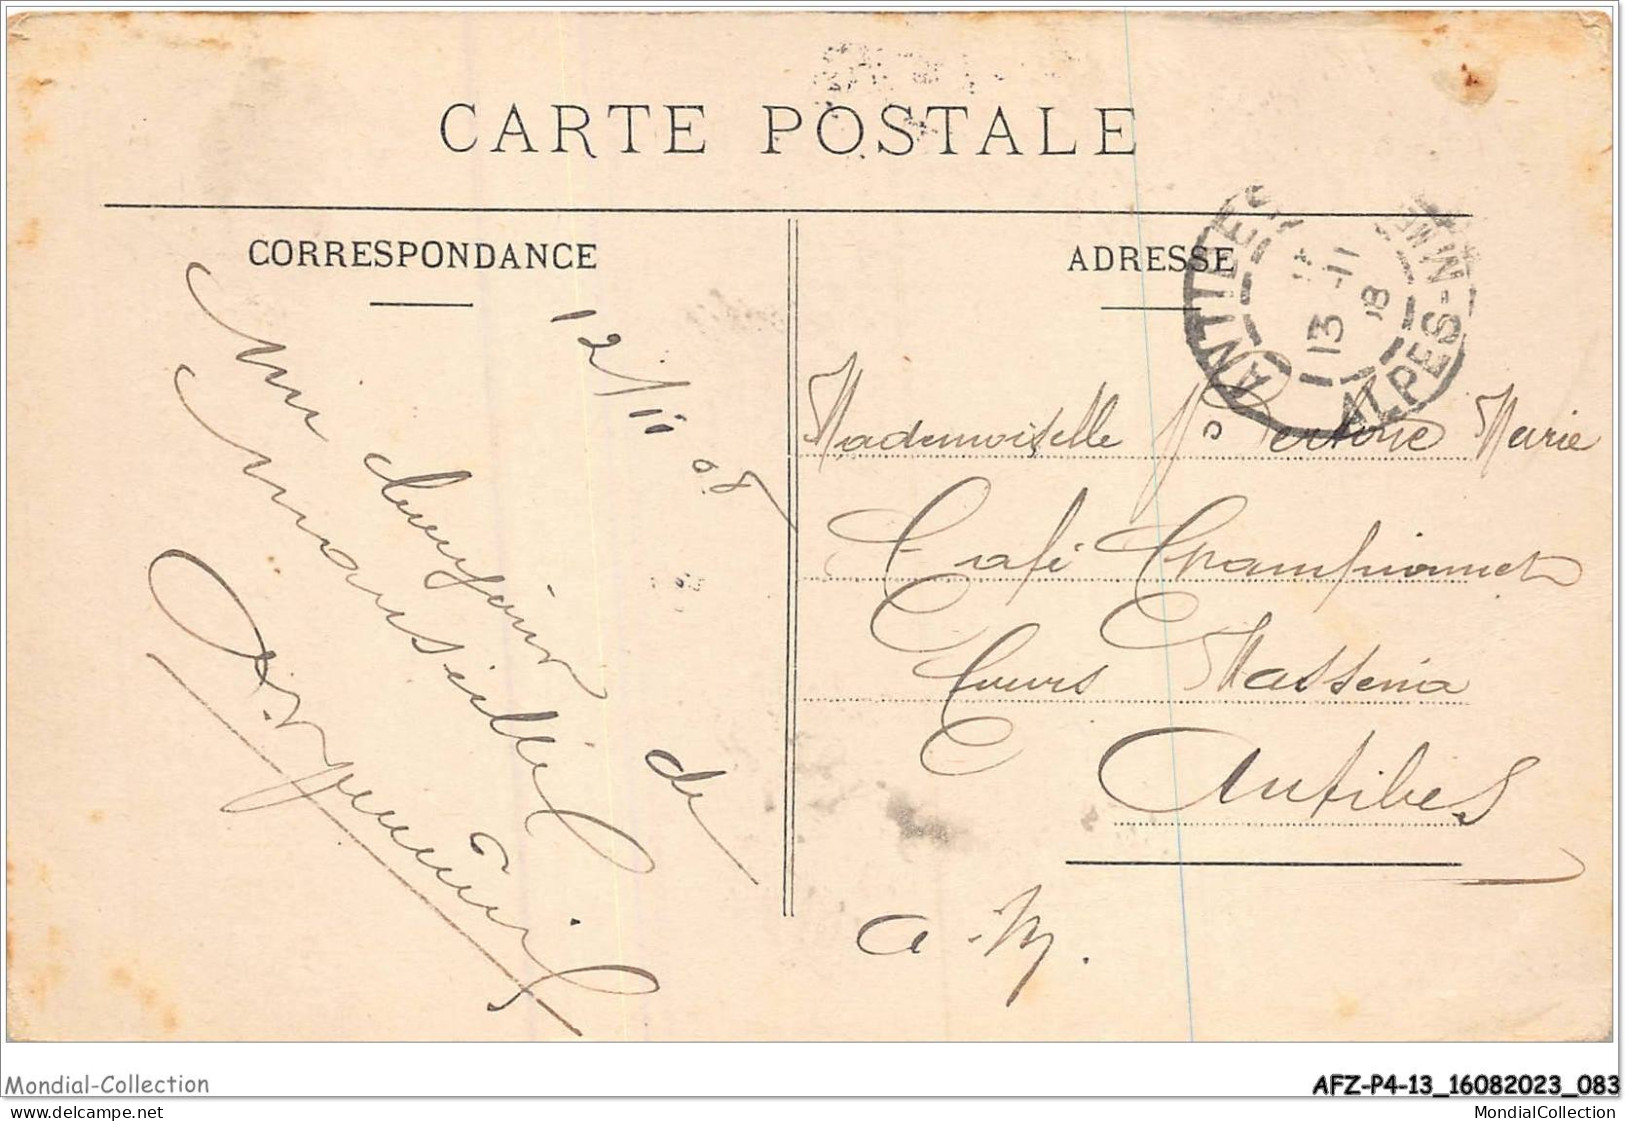 CARTE POSTALE
CORRESPONDANCE
12/11 08
Un
de
Marseille
ADRESSE
ANTIBES
13 -11
08
ALPES-MMES
Mademoiselle Marie
Café Championnet
Cours Masséna
Antibes
A.M.
Mondial-Collection
AFZ-P4-13_16082023_083
delcampe.net
MondialCollection